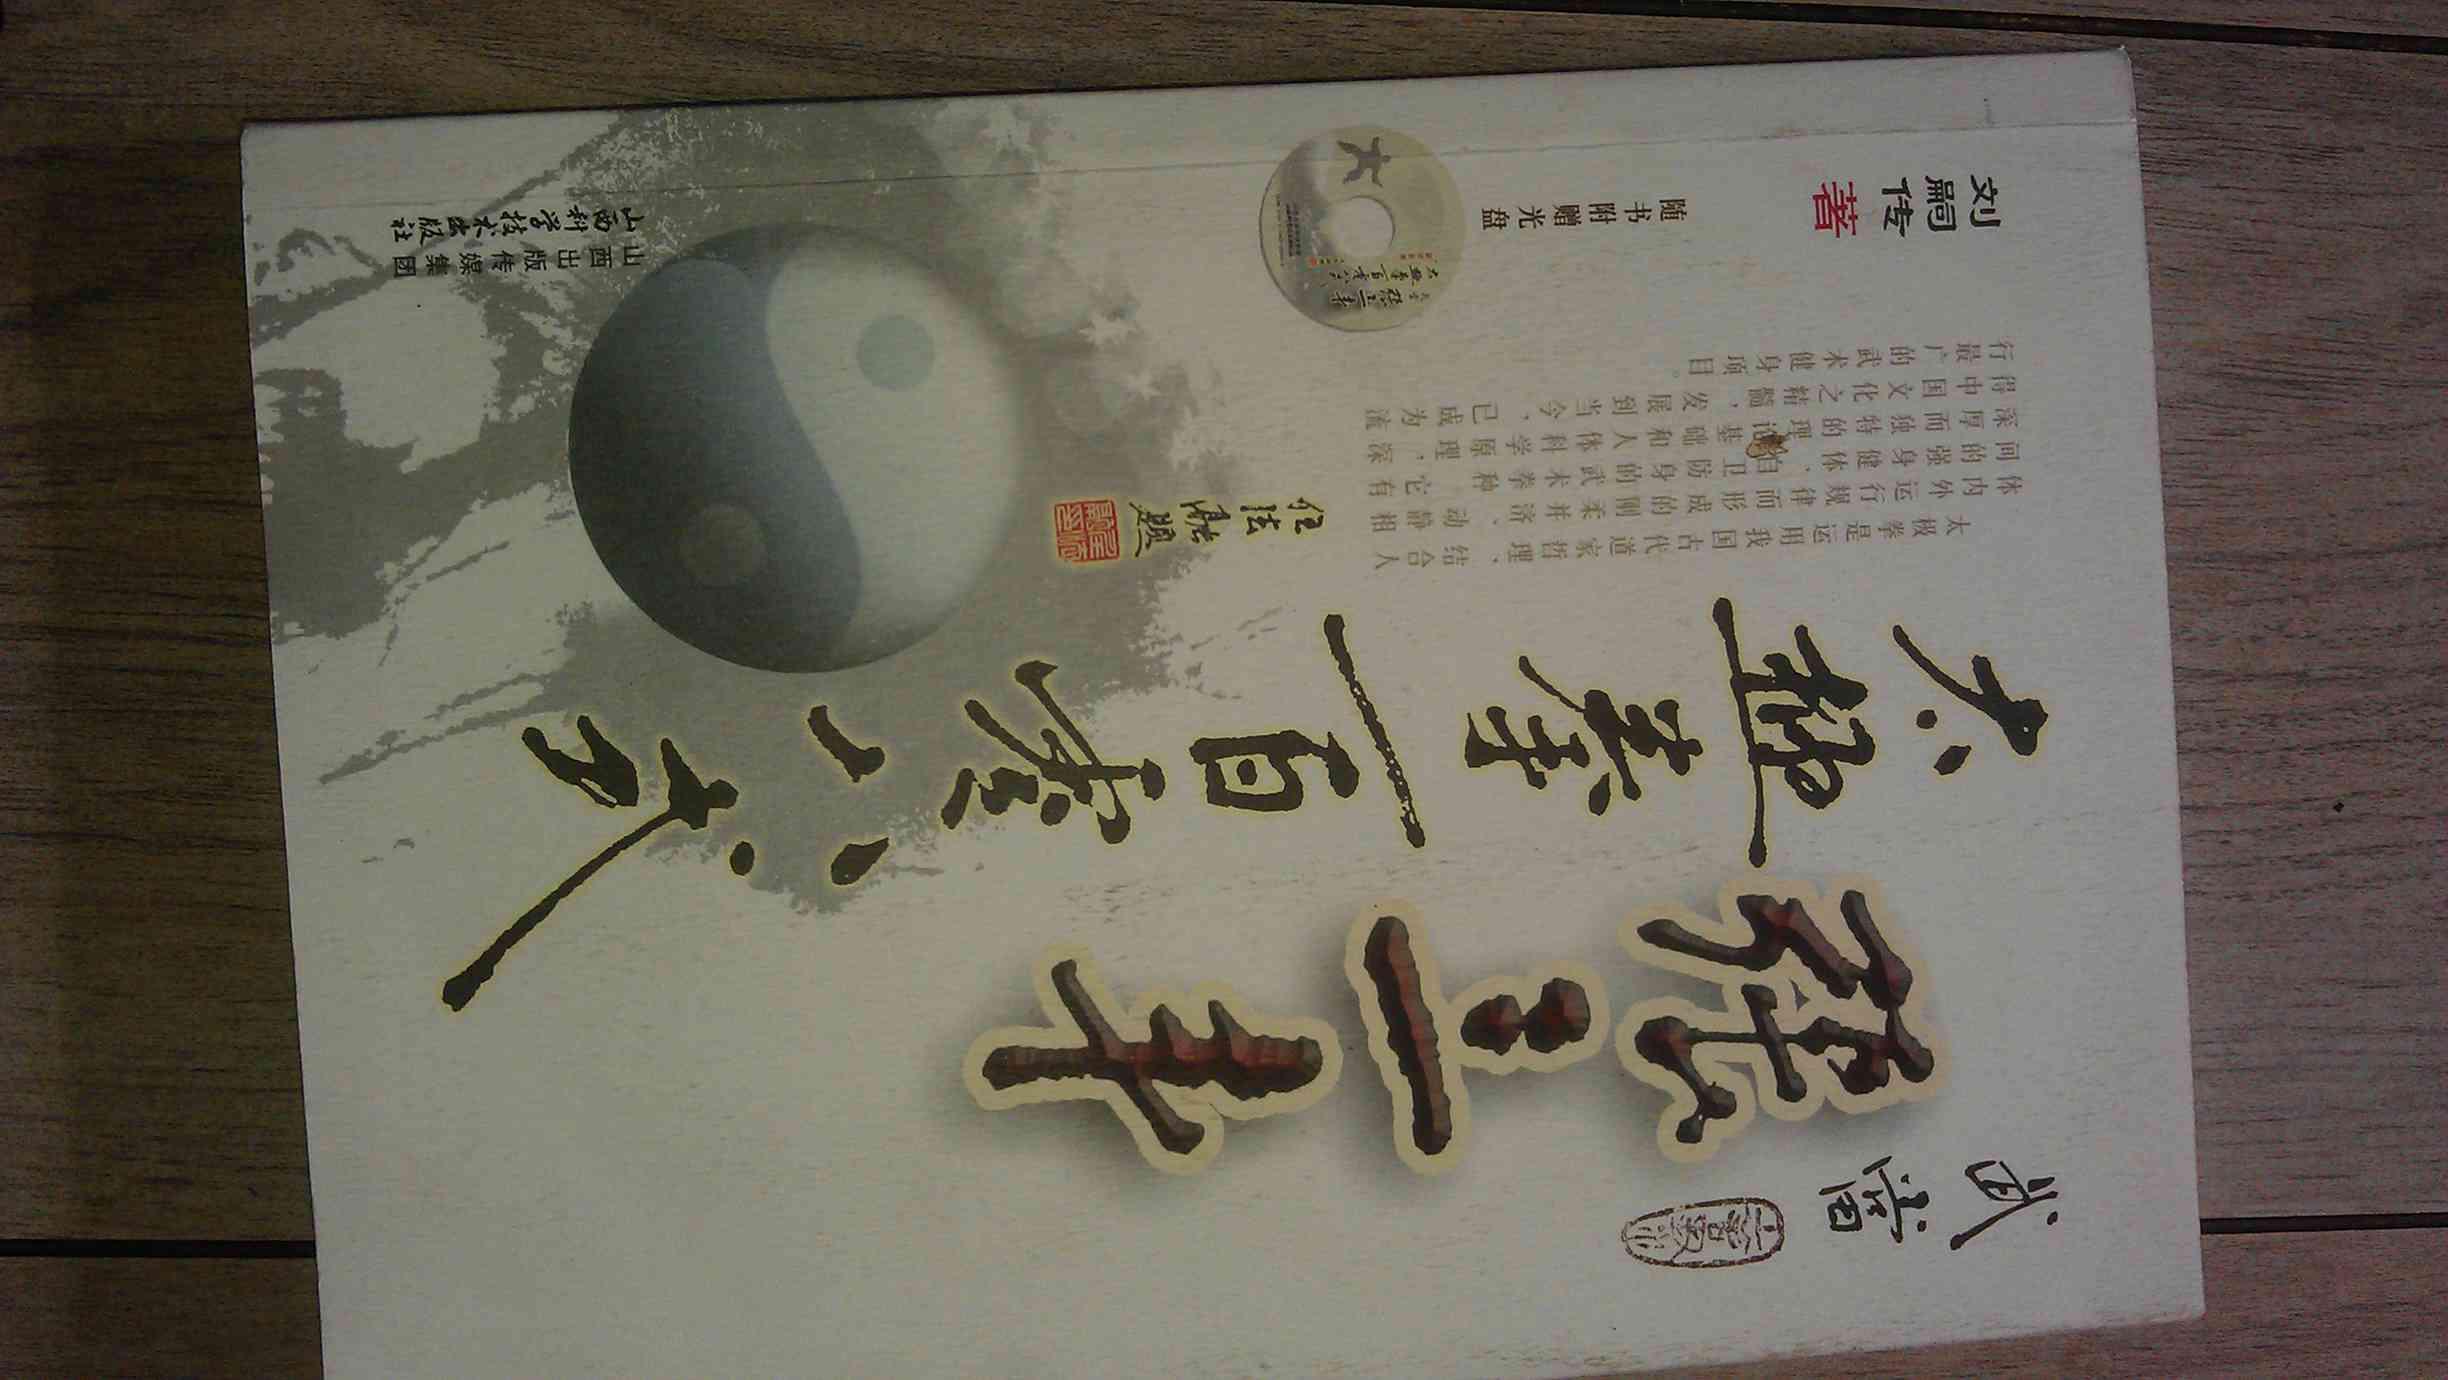 武當
張三丰
太極拳一百零八式
任法融題
太极拳是运用我国古代道家哲理、结合人
体内外运行规律而形成的刚柔并济、动静相
间的强身健体、自卫防身的武术拳种，它有
深厚而独特的理论基础和人体科学原理，深
得中国文化之精髓，发展到当今，已成为流
行最广的武术健身项目。
刘嗣传 著
随书附赠光盘
山西出版传媒集团
山西科学技术出版社